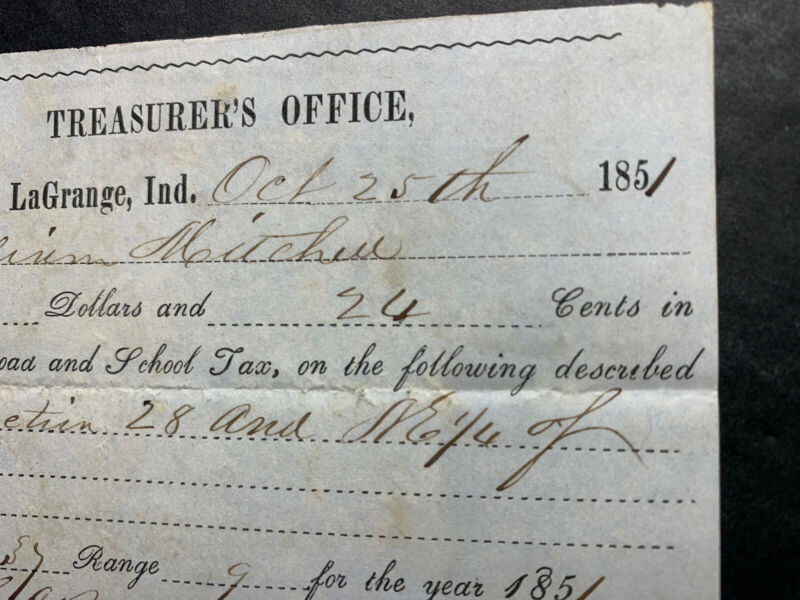 TREASURER'S OFFICE,
LaGrange, Ind. Oct 25th 1851
Mitchell
Dollars and 24 Cents in
oad and School Tax, on the following described
ction 28 and NE 1/4 of
37 Range 9 for the year 1851